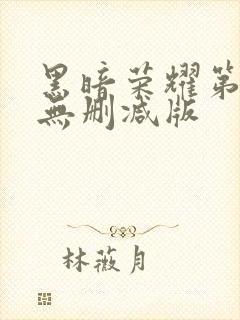 黑暗荣耀第
無删减版
林薇月